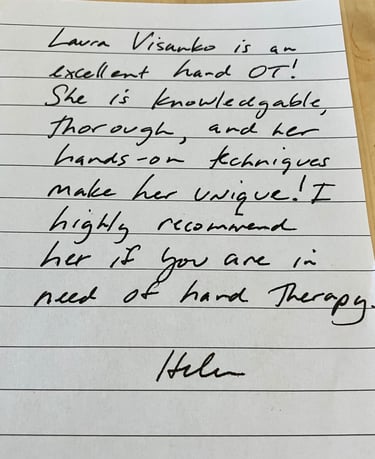 Laura Visanko is an
excellent hand OT!
She is knowledgable,
thorough, and her
hands-on techniques
make her unique! I
highly recommend
her if you are in
need of hand Therapy.
Helen